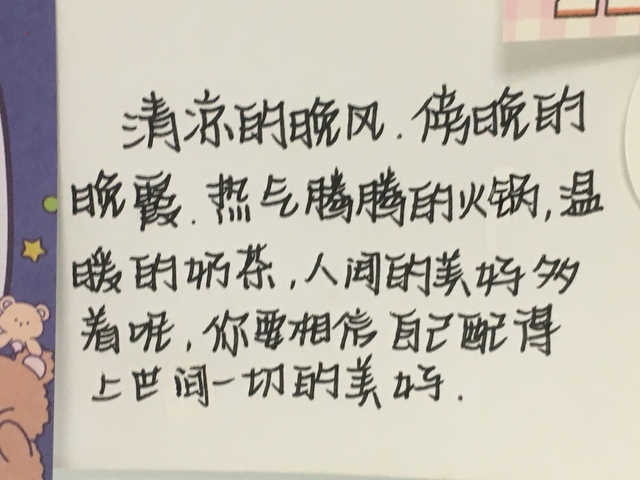 清凉的晚风.傍晚的
晚霞.热气腾腾的火锅,温
暖的奶茶,人间的美好多
着呢,你要相信自己配得
上世间一切的美好.